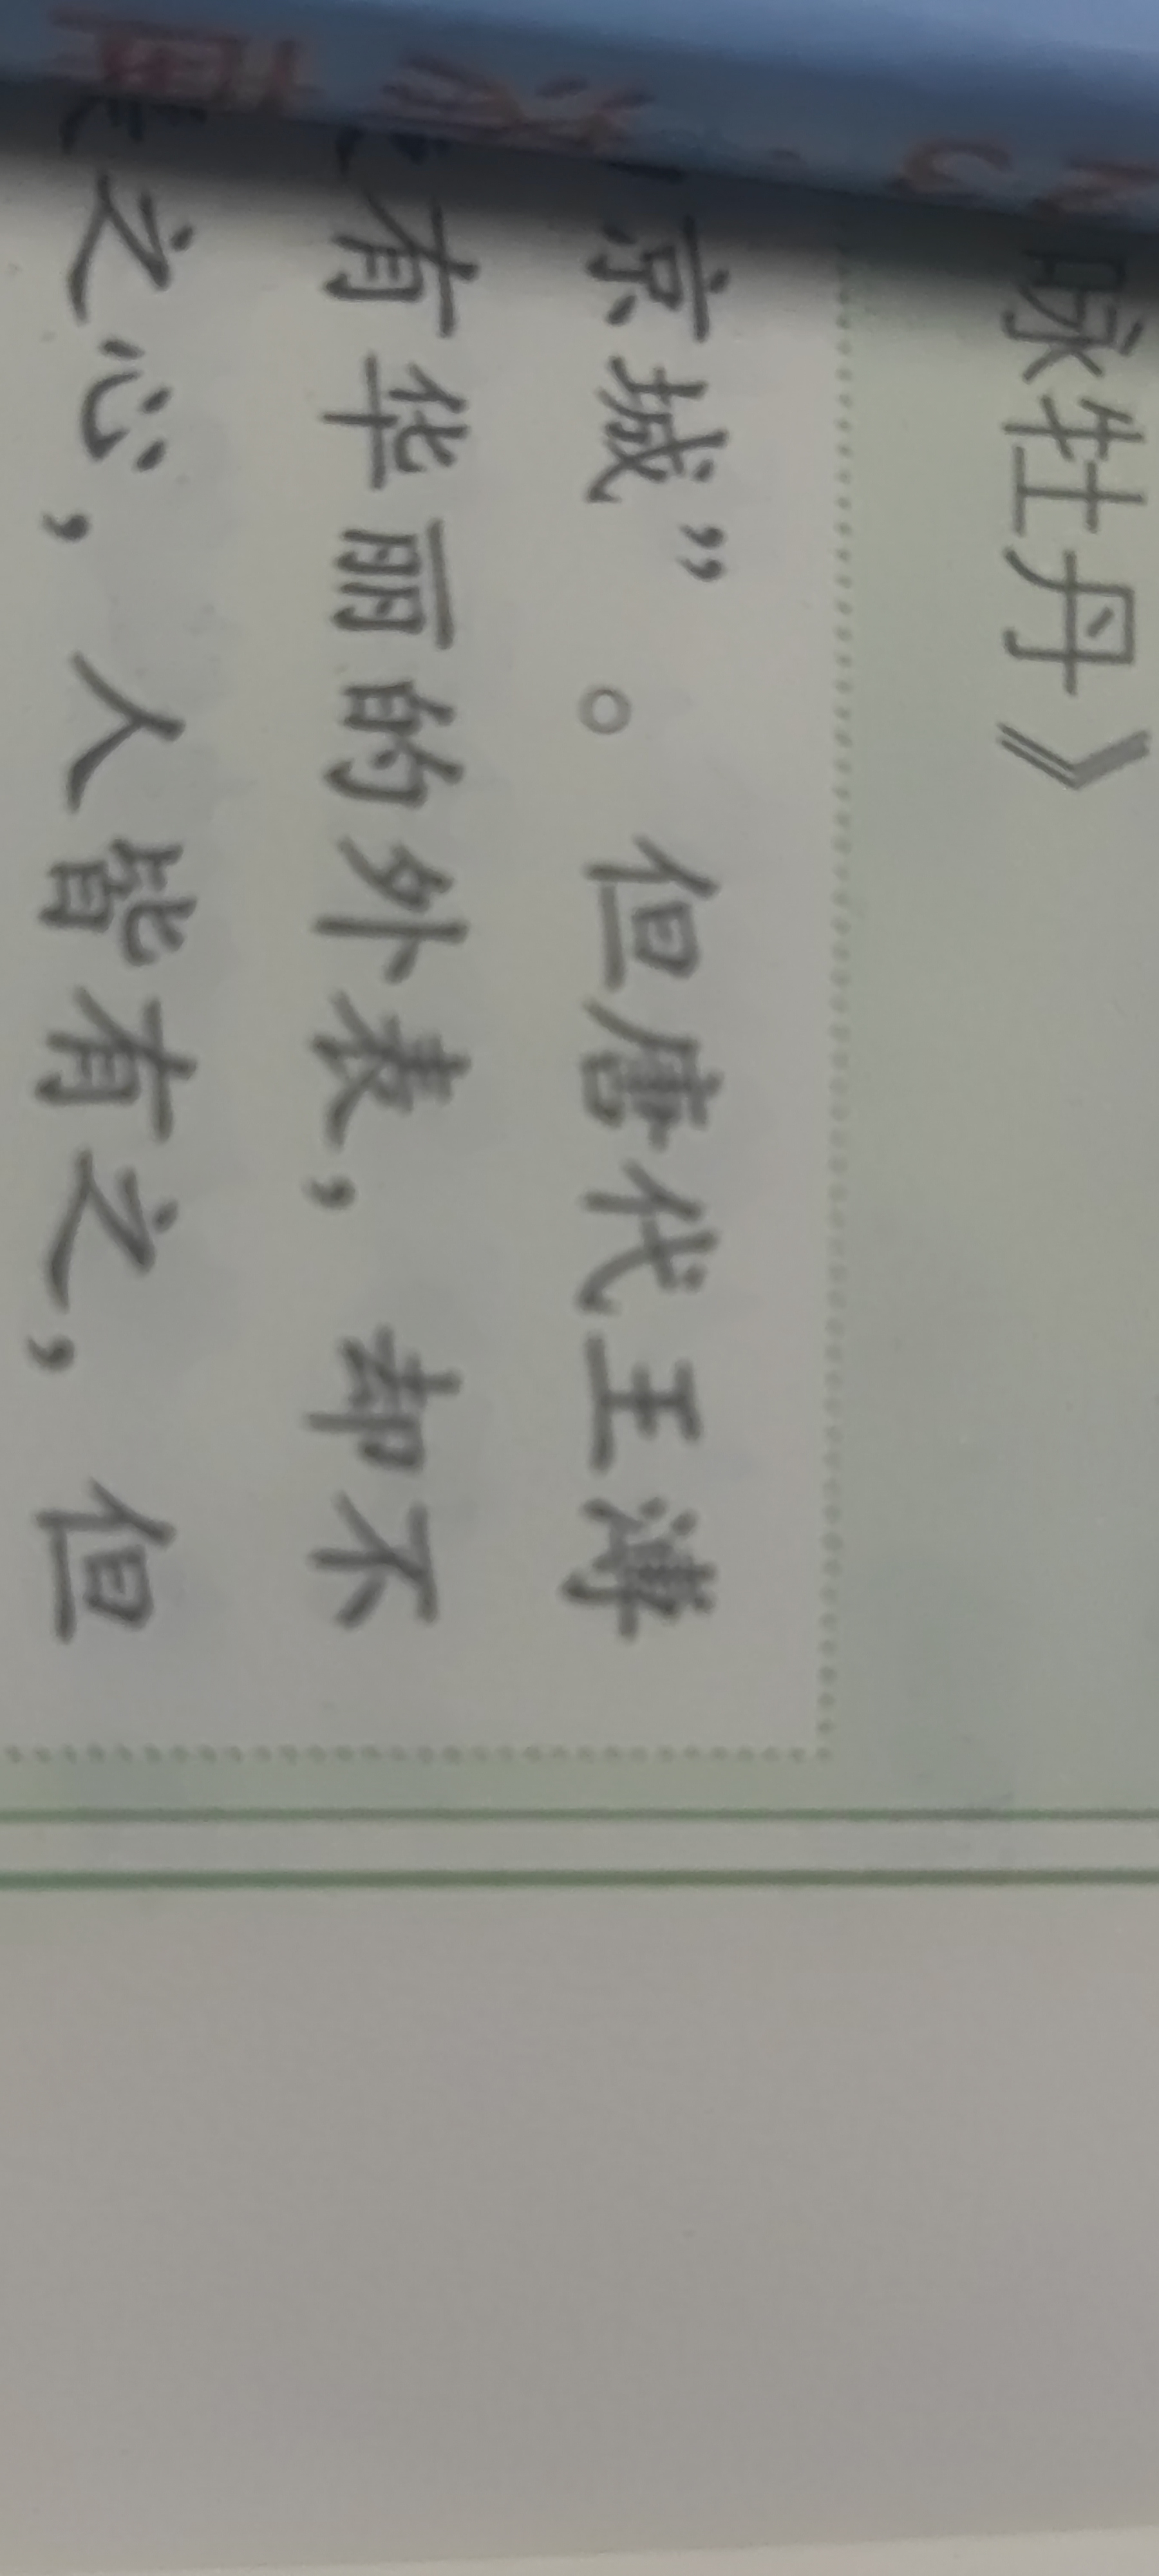 咏牡丹》
京城”。但唐代王溥
有华丽的外表，却不
之心，人皆有之，但